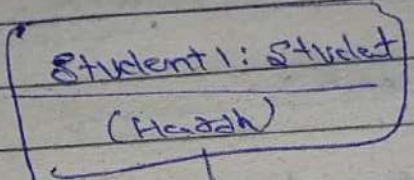 Student1: Studet
(Harsh)